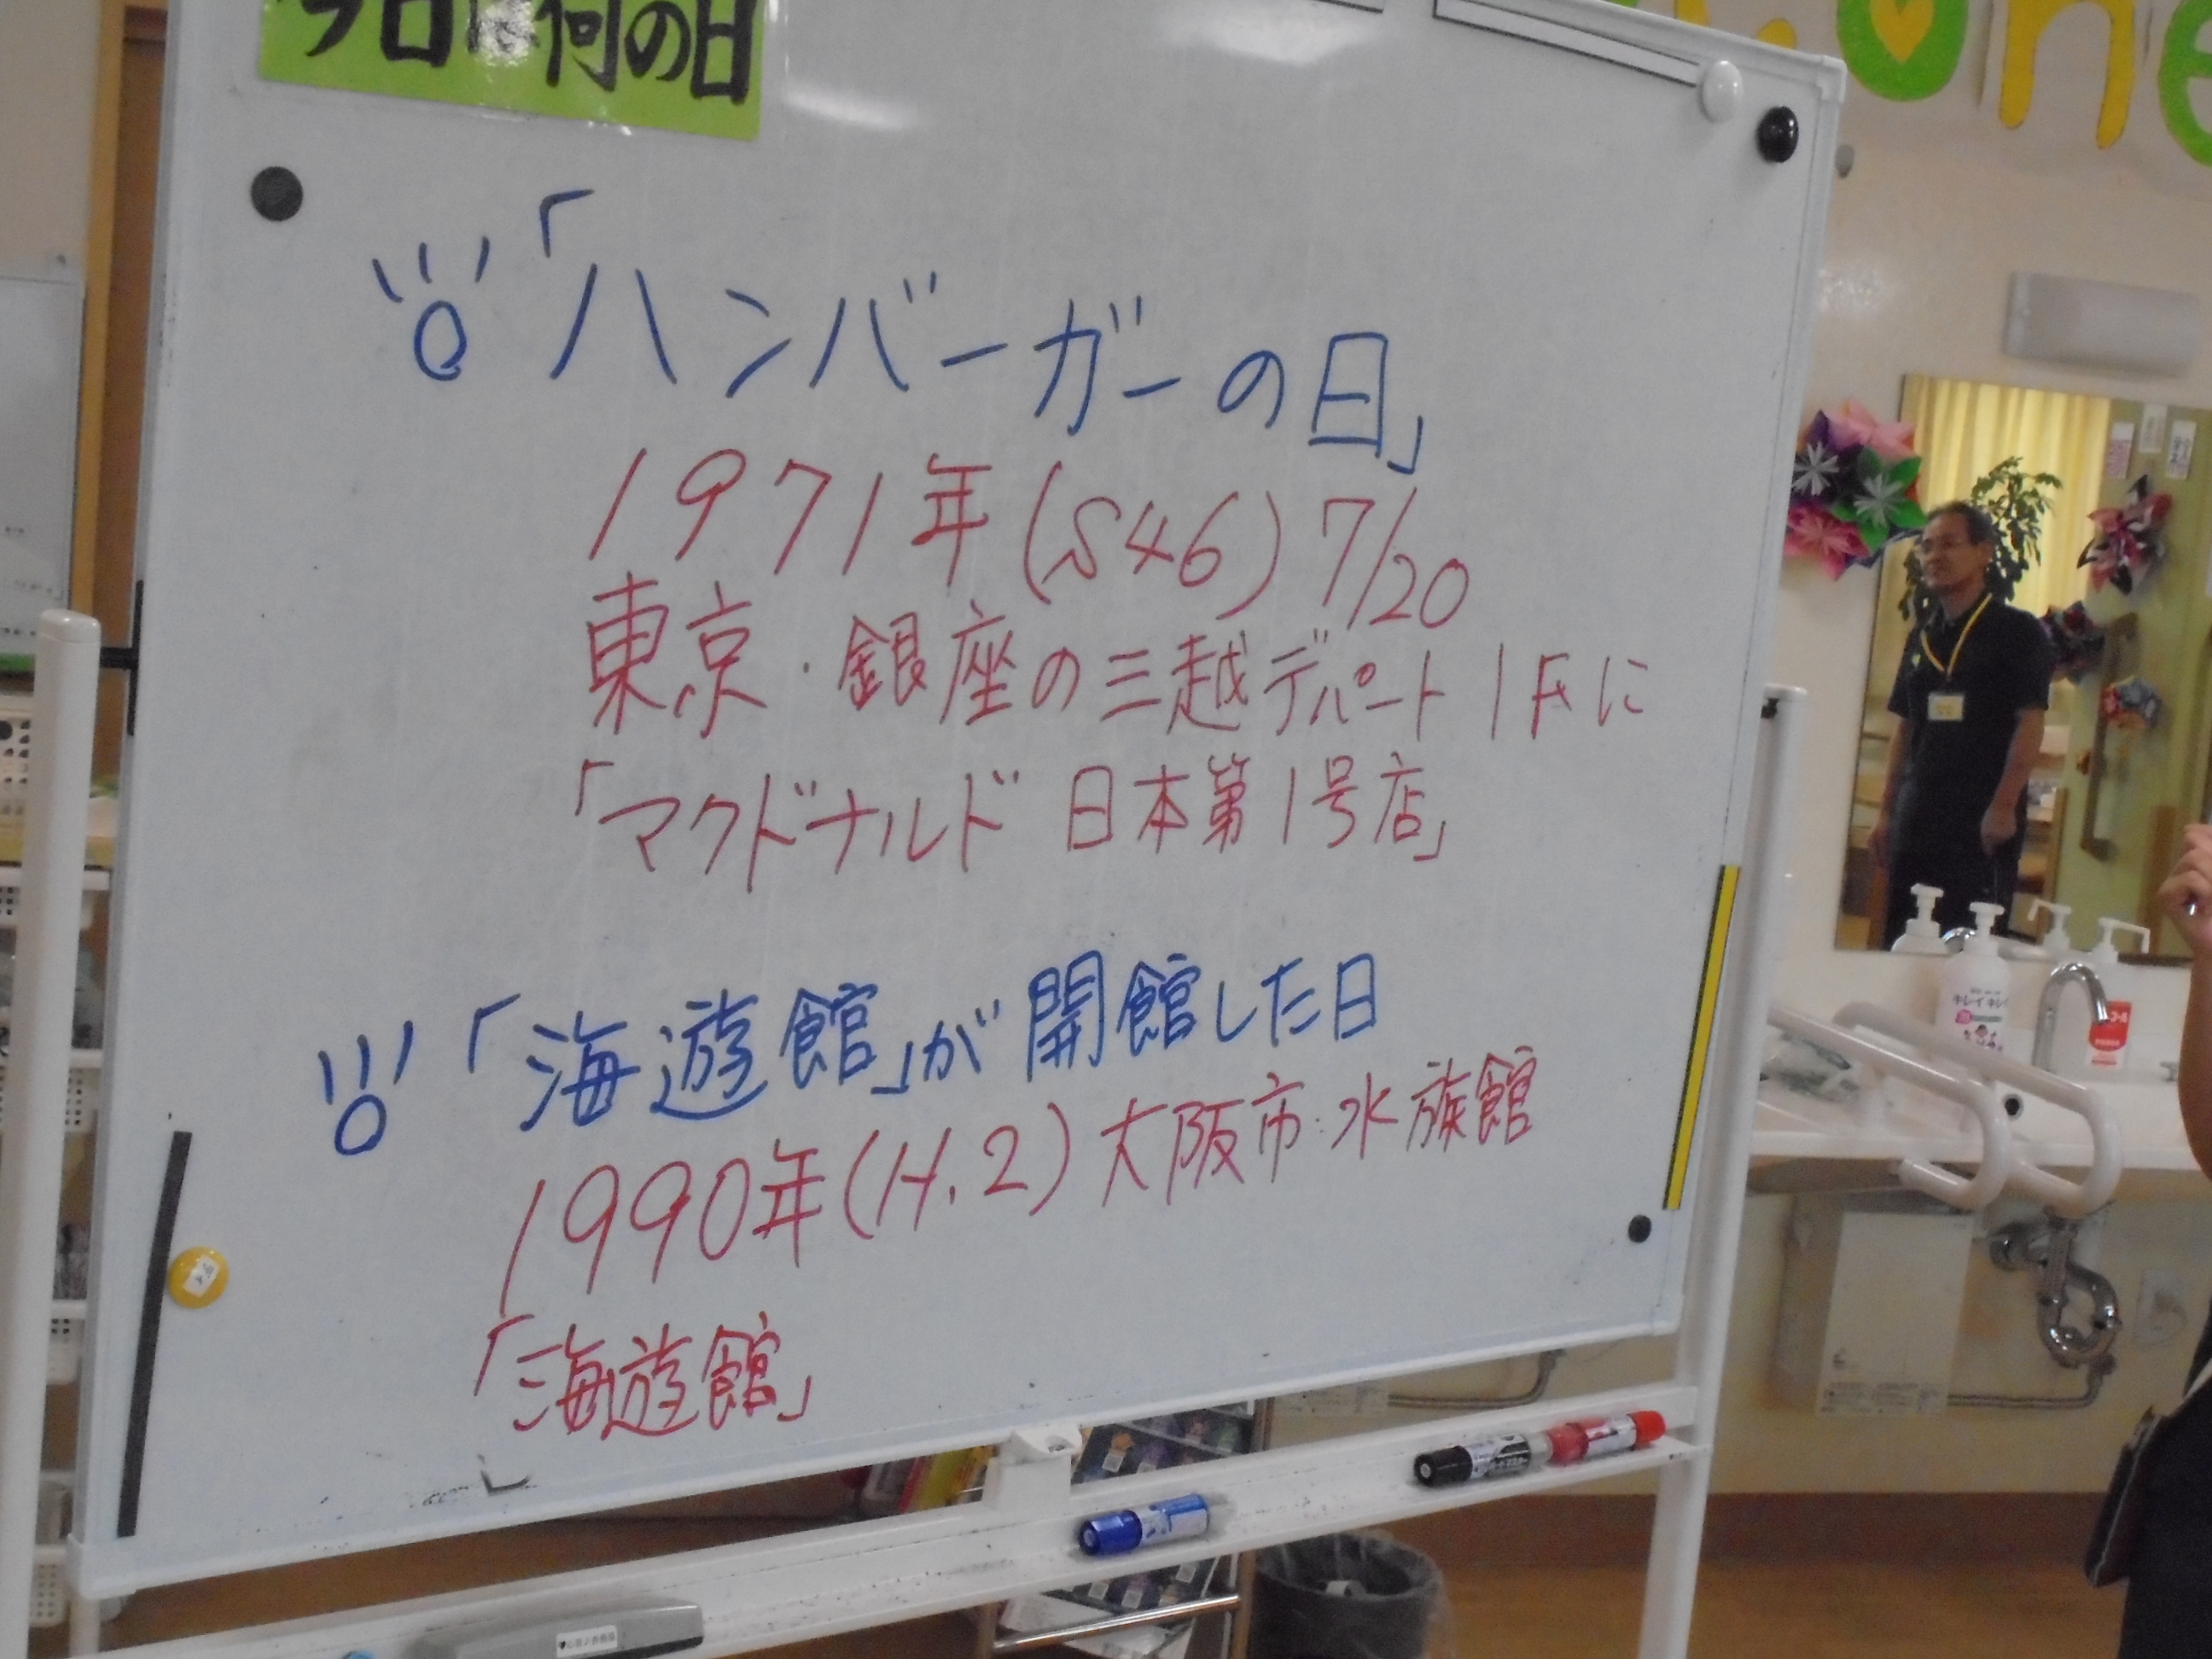 今日は何の日
「ハンバーガーの日」
1971年(S46)7/20
東京・銀座の三越デパート1Fに
「マクドナルド 日本第1号店」
「海遊館」が開館した日
1990年(H.2)大阪市・水族館
「海遊館」
キレイキレイ